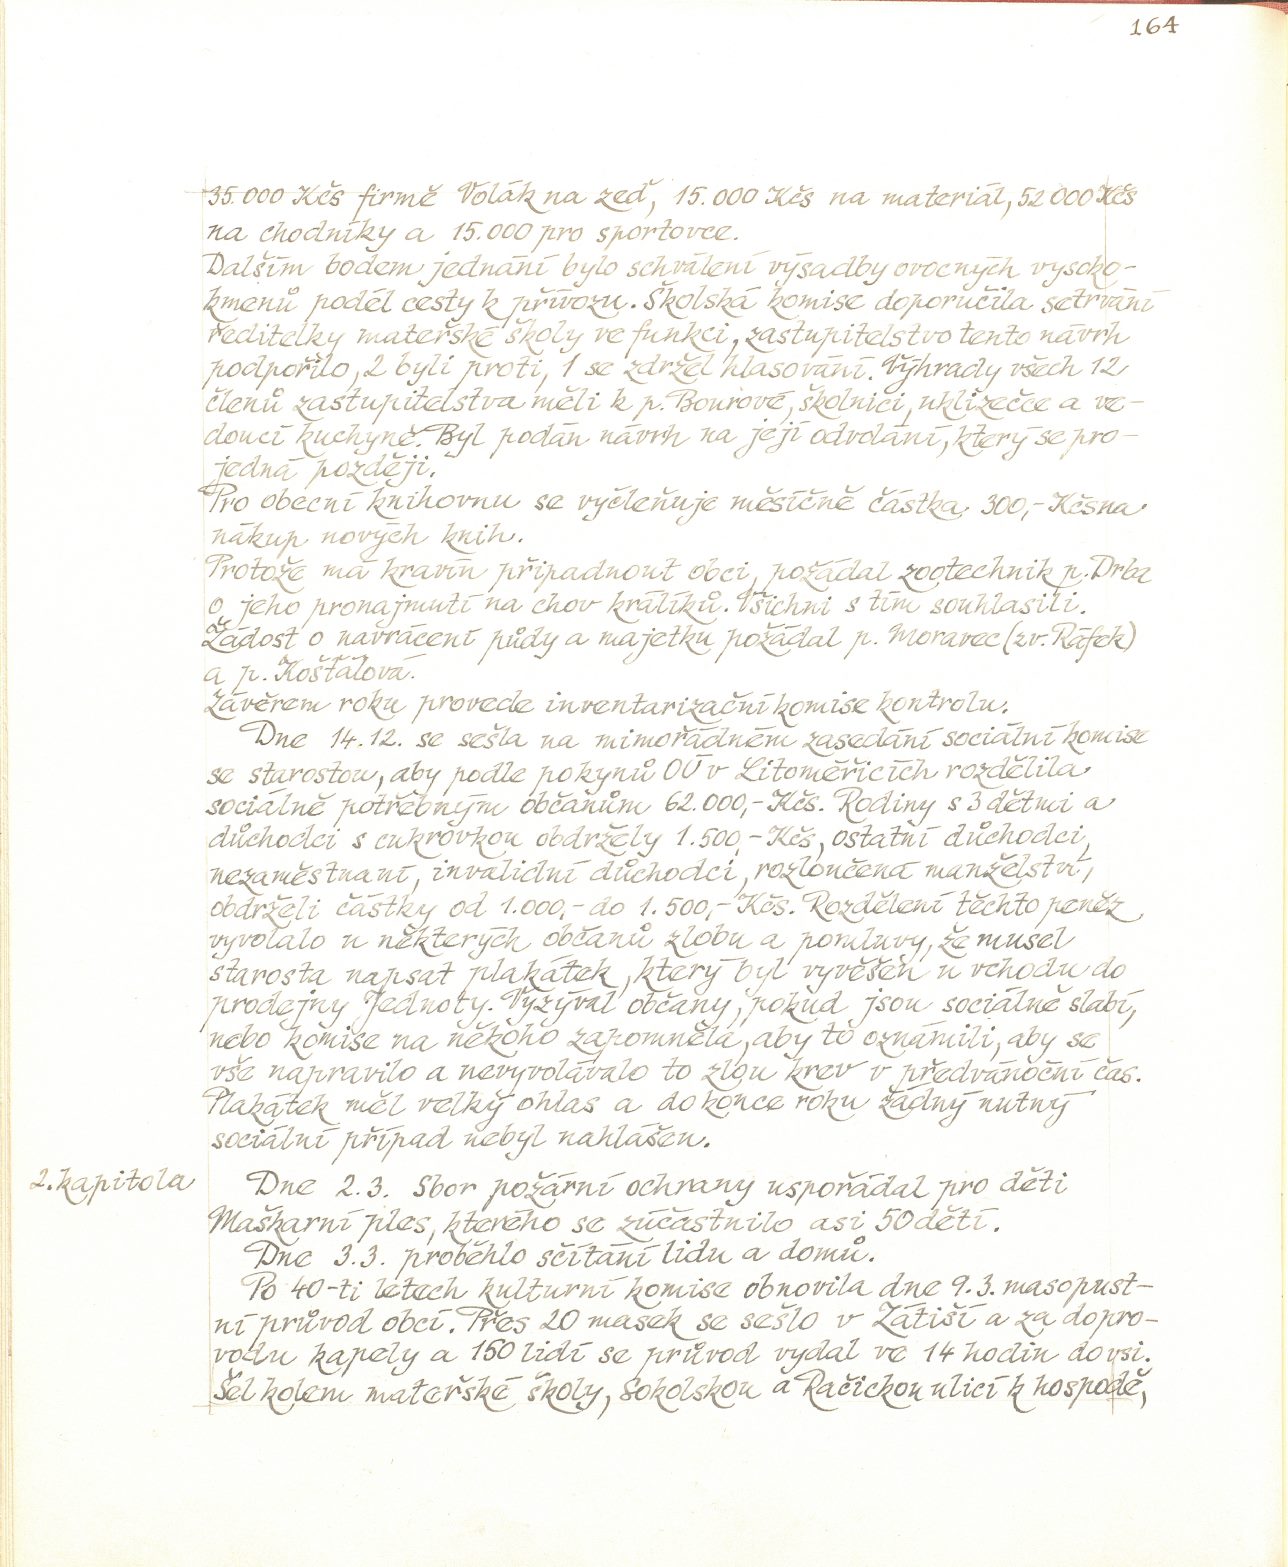 164
35.000 Kčs firmě Volák na zeď, 15.000 Kčs na materiál, 52 000 Kčs
na chodníky a 15.000 pro sportovce.
Dalším bodem jednání bylo schválení výsadby ovocných vysoko-
kmenů podél cesty k přívozu. Školská komise doporučila setrvání
ředitelky mateřské školy ve funkci, zastupitelstvo tento návrh
podpořilo, 2 byli proti, 1 se zdržel hlasování. Výhrady všech 12
členů zastupitelstva měli k p. Bourové, školnici, uklizečce a ve-
doucí kuchyně. Byl podán návrh na její odvolání, který se pro-
jedná později.
Pro obecní knihovnu se vyčleňuje měsíčně částka 300,- Kčs na
nákup nových knih.
Protože má kravín připadnout obci, požádal zootechnik p. Drbal
o jeho pronajmutí na chov králíků. Všichni s tím souhlasili.
Žádost o navrácení půdy a majetku požádal p. Moravec (zv. Ráfek)
a p. Košťálová.
Závěrem roku provede inventarizační komise kontrolu.
Dne 14.12. se sešla na mimořádném zasedání sociální komise
se starostou, aby podle pokynů OÚ v Litoměřicích rozdělila
sociálně potřebným občanům 62.000,- Kčs. Rodiny s 3 dětmi a
důchodci s cukrovkou obdržely 1.500,- Kčs, ostatní důchodci,
nezaměstnaní, invalidní důchodci, rozloučená manželství,
obdrželi částky od 1.000,- do 1.500,- Kčs. Rozdělení těchto peněz
vyvolalo u některých občanů zlobu a pomluvy, že musel
starosta napsat plakátek, který byl vyvěšen u vchodu do
prodejny Jednoty. Vyzýval občany, pokud jsou sociálně slabí,
nebo komise na někoho zapomněla, aby to oznámili, aby se
vše napravilo a nevyvolávalo to zlou krev v předvánoční čas.
Plakátek měl velký ohlas a do konce roku žádný nutný
sociální případ nebyl nahlášen.
2. kapitola Dne 2.3. Sbor požární ochrany uspořádal pro děti
Maškarní ples, kterého se zúčastnilo asi 50 dětí.
Dne 3.3. proběhlo sčítání lidu a domů.
Po 40-ti letech kulturní komise obnovila dne 9.3. masopust-
ní průvod obcí. Přes 20 masek se sešlo v Zátiší a za dopro-
vodu kapely a 150 lidí se průvod vydal ve 14 hodin do vsi.
Šel kolem mateřské školy, Sokolskou a Račickou ulicí k hospodě,